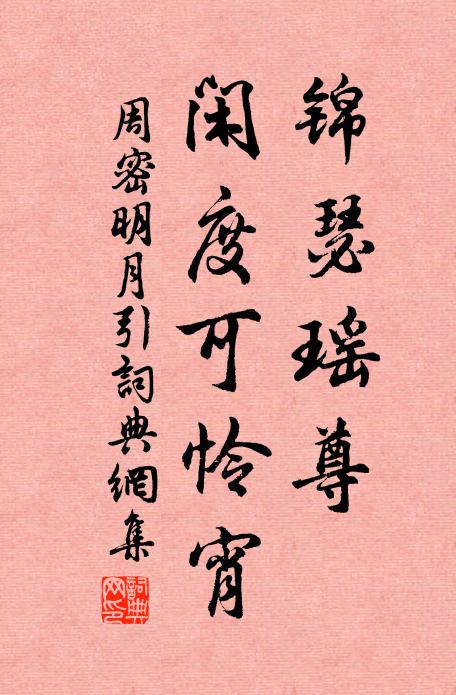 锦瑟瑶尊
闲度可怜宵
周密明月引詞典網集
詞典网印